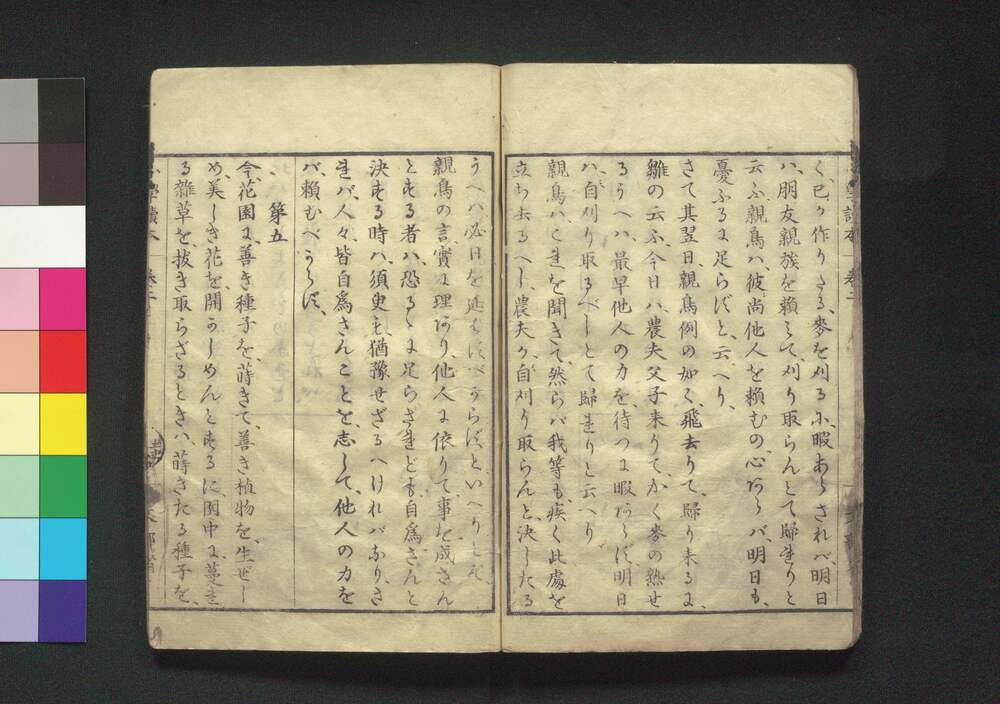 く己が作りたる、麥を刈るに、暇あらざれバ、明日
ハ、朋友親族を賴みて、刈り取らんとて歸れりと
云ふ、親鳥ハ、彼尚他人を賴むの、心あらバ、明日も、
憂ふるに足らずと、云へり、
さて其翌日、親鳥例の如く、飛去りて、歸り來るに、
雛の云ふ、今日ハ、農夫父子來りて、かく麥の熟せ
るうへハ、最早他人の力を待つに暇あらず、明日
ハ、自刈り取るべしとて歸れりと云へり
親鳥ハ、これを聞きて、然らバ我等も、疾く此處を
立ち去るへし、農夫が、自刈り取らんと、決したる
うへハ、必日を延はすべからずと、いへりとぞ、
親鳥の言、實に理あり、他人に依りて、事を成さん
とする者ハ、恐るゝに足らざれども、自爲さんと
決する時ハ、須臾も猶豫せざるへけれバなり、さ
れバ、人々、皆自爲さんことを、志して、他人の力を
バ、賴むべからず、
第五
今、花園に、善き種子を、蒔きて、善き植物を、生ぜし
め、美しき花を、開かしめんとするに、園中に、蔓れ
る雜草を、拔き取らざるときハ、蒔きたる種子を、
小學讀本
卷二